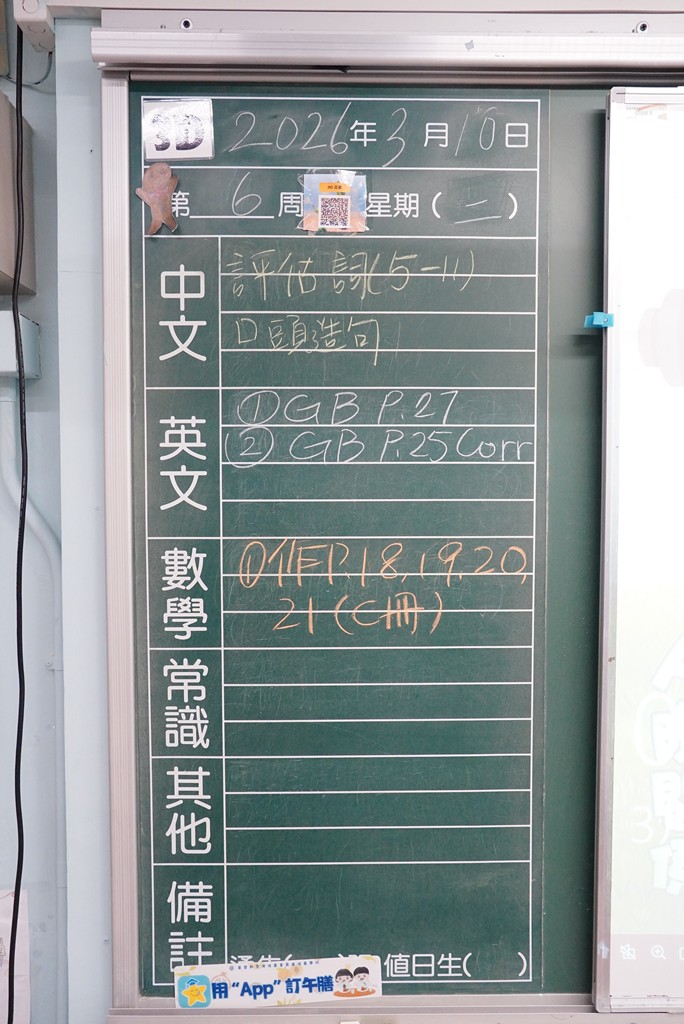 3D
2026年3月10日
第6周 星期(二)
中文
評估詞(5-11)
口頭造句
英文
①GB P.27
②GB P.25Corr
數學
①作P.18,19,20,
21(C冊)
常識
其他
備註
值日生( )
用“App”訂午膳